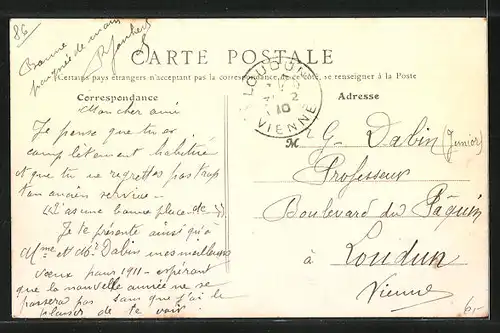 86
Bonne
poignée de main
R Joubert
CARTE POSTALE
Certains pays étrangers n'acceptant pas la correspondance de ce côté, se renseigner à la Poste
Correspondance
Adresse
LOUDUN
2
10
VIENNE
Mon cher ami
Je pense que tu es
complètement habitué
et que tu ne regrettes pas trop
ton ancien service -
as une bonne place.
Je te présente ainsi qu'à
Mme et Mr Dabin mes meilleurs
voeux pour 1911 - espérant
que la nouvelle année ne se
passera pas sans que j'ai le
plaisir de te voir.
M G. Dabin (Junior)
Professeur
Boulevard du
à Loudun
Vienne